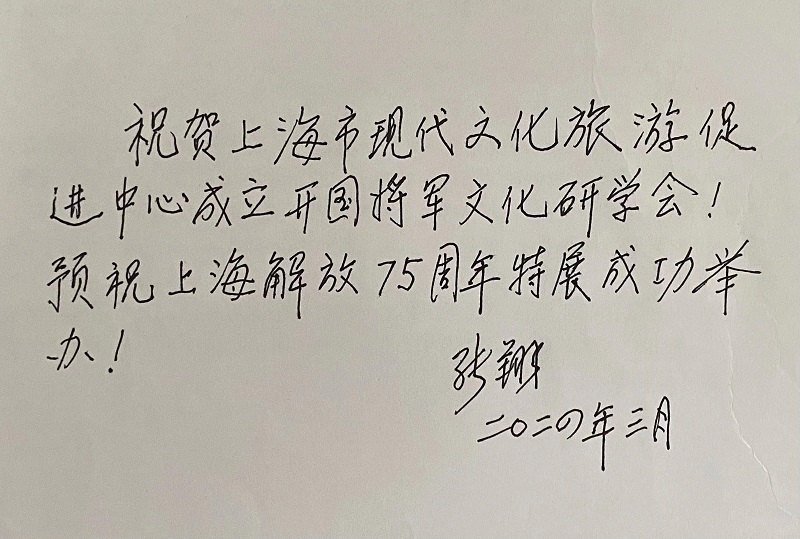 祝贺上海市现代文化旅游促
进中心成立开国将军文化研学会！
预祝上海解放75周年特展成功举
办！
张翔
二〇二四年三月